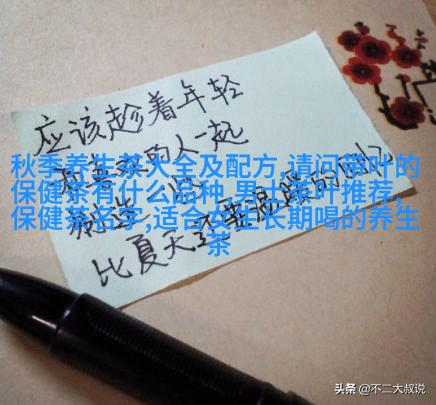 应该趁着年轻
的人一起
制造
比夏天还要温暖的
秋季养生茶大全及配方,请问带叶的
保健茶有什么品种,男士茶叶推荐,
保健茶名字,适合女生长期喝的养生
茶
头条 @不二大叔说